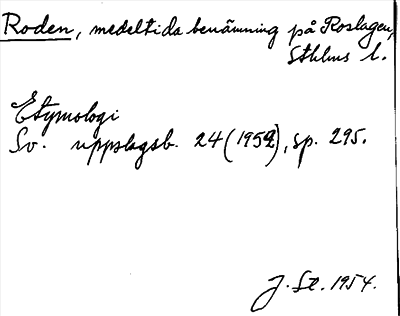 Roden, medeltida benämning på Roslagen,
Sthlms l.
Etymologi
Sv. uppslagsb. 24 (1952), sp. 295.
J. St. 1954.